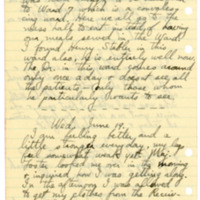 to Ward 7 which is a convalesc-
ing ward. Here we all go to the
mess hall to eat, instead of having
our meals served in the Ward.
I found Henry Stabler in this
ward also, he is entirely well now.
The Dr. in this ward comes around
only once a day & doesnt see all
the patients, only those whom
he particularly wants to see.
Wed. June 19.
am feeling better, and a
little stronger every day, my legs
but somewhat weak yet. Miss
Foster looked me over in the morning
& inquired how I was getting along.
In the afternoon I was allowed
to get my clothes from the Receiv-